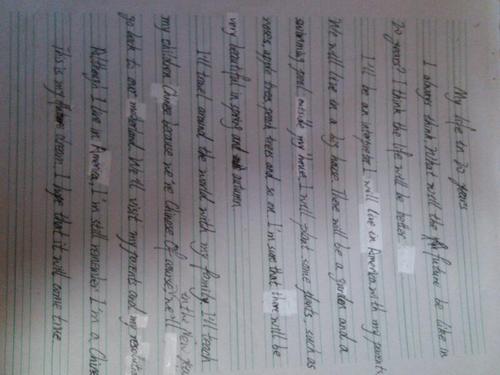 My life in 20 years
I always think: What will the future be like in
20 years? I think the life will be better.
I'll be an I will live in America with my parents
We will live in a big house. There will be a garden and a
swimming pool. outside my house, I will plant some plants, such as
roses, apple trees, peach trees and so on. I'm sure that there will be
very beautiful in spring and autumn.
I'll travel around the world with my family. I'll teach
my children Chinese because we're Chinese. Of couse, we'll
on the New Year
go back to our motherland. We'll visit my parents and my
Although I live in America, I'm still remember I'm a Chinese
This is my dream. I hope that it will come true.